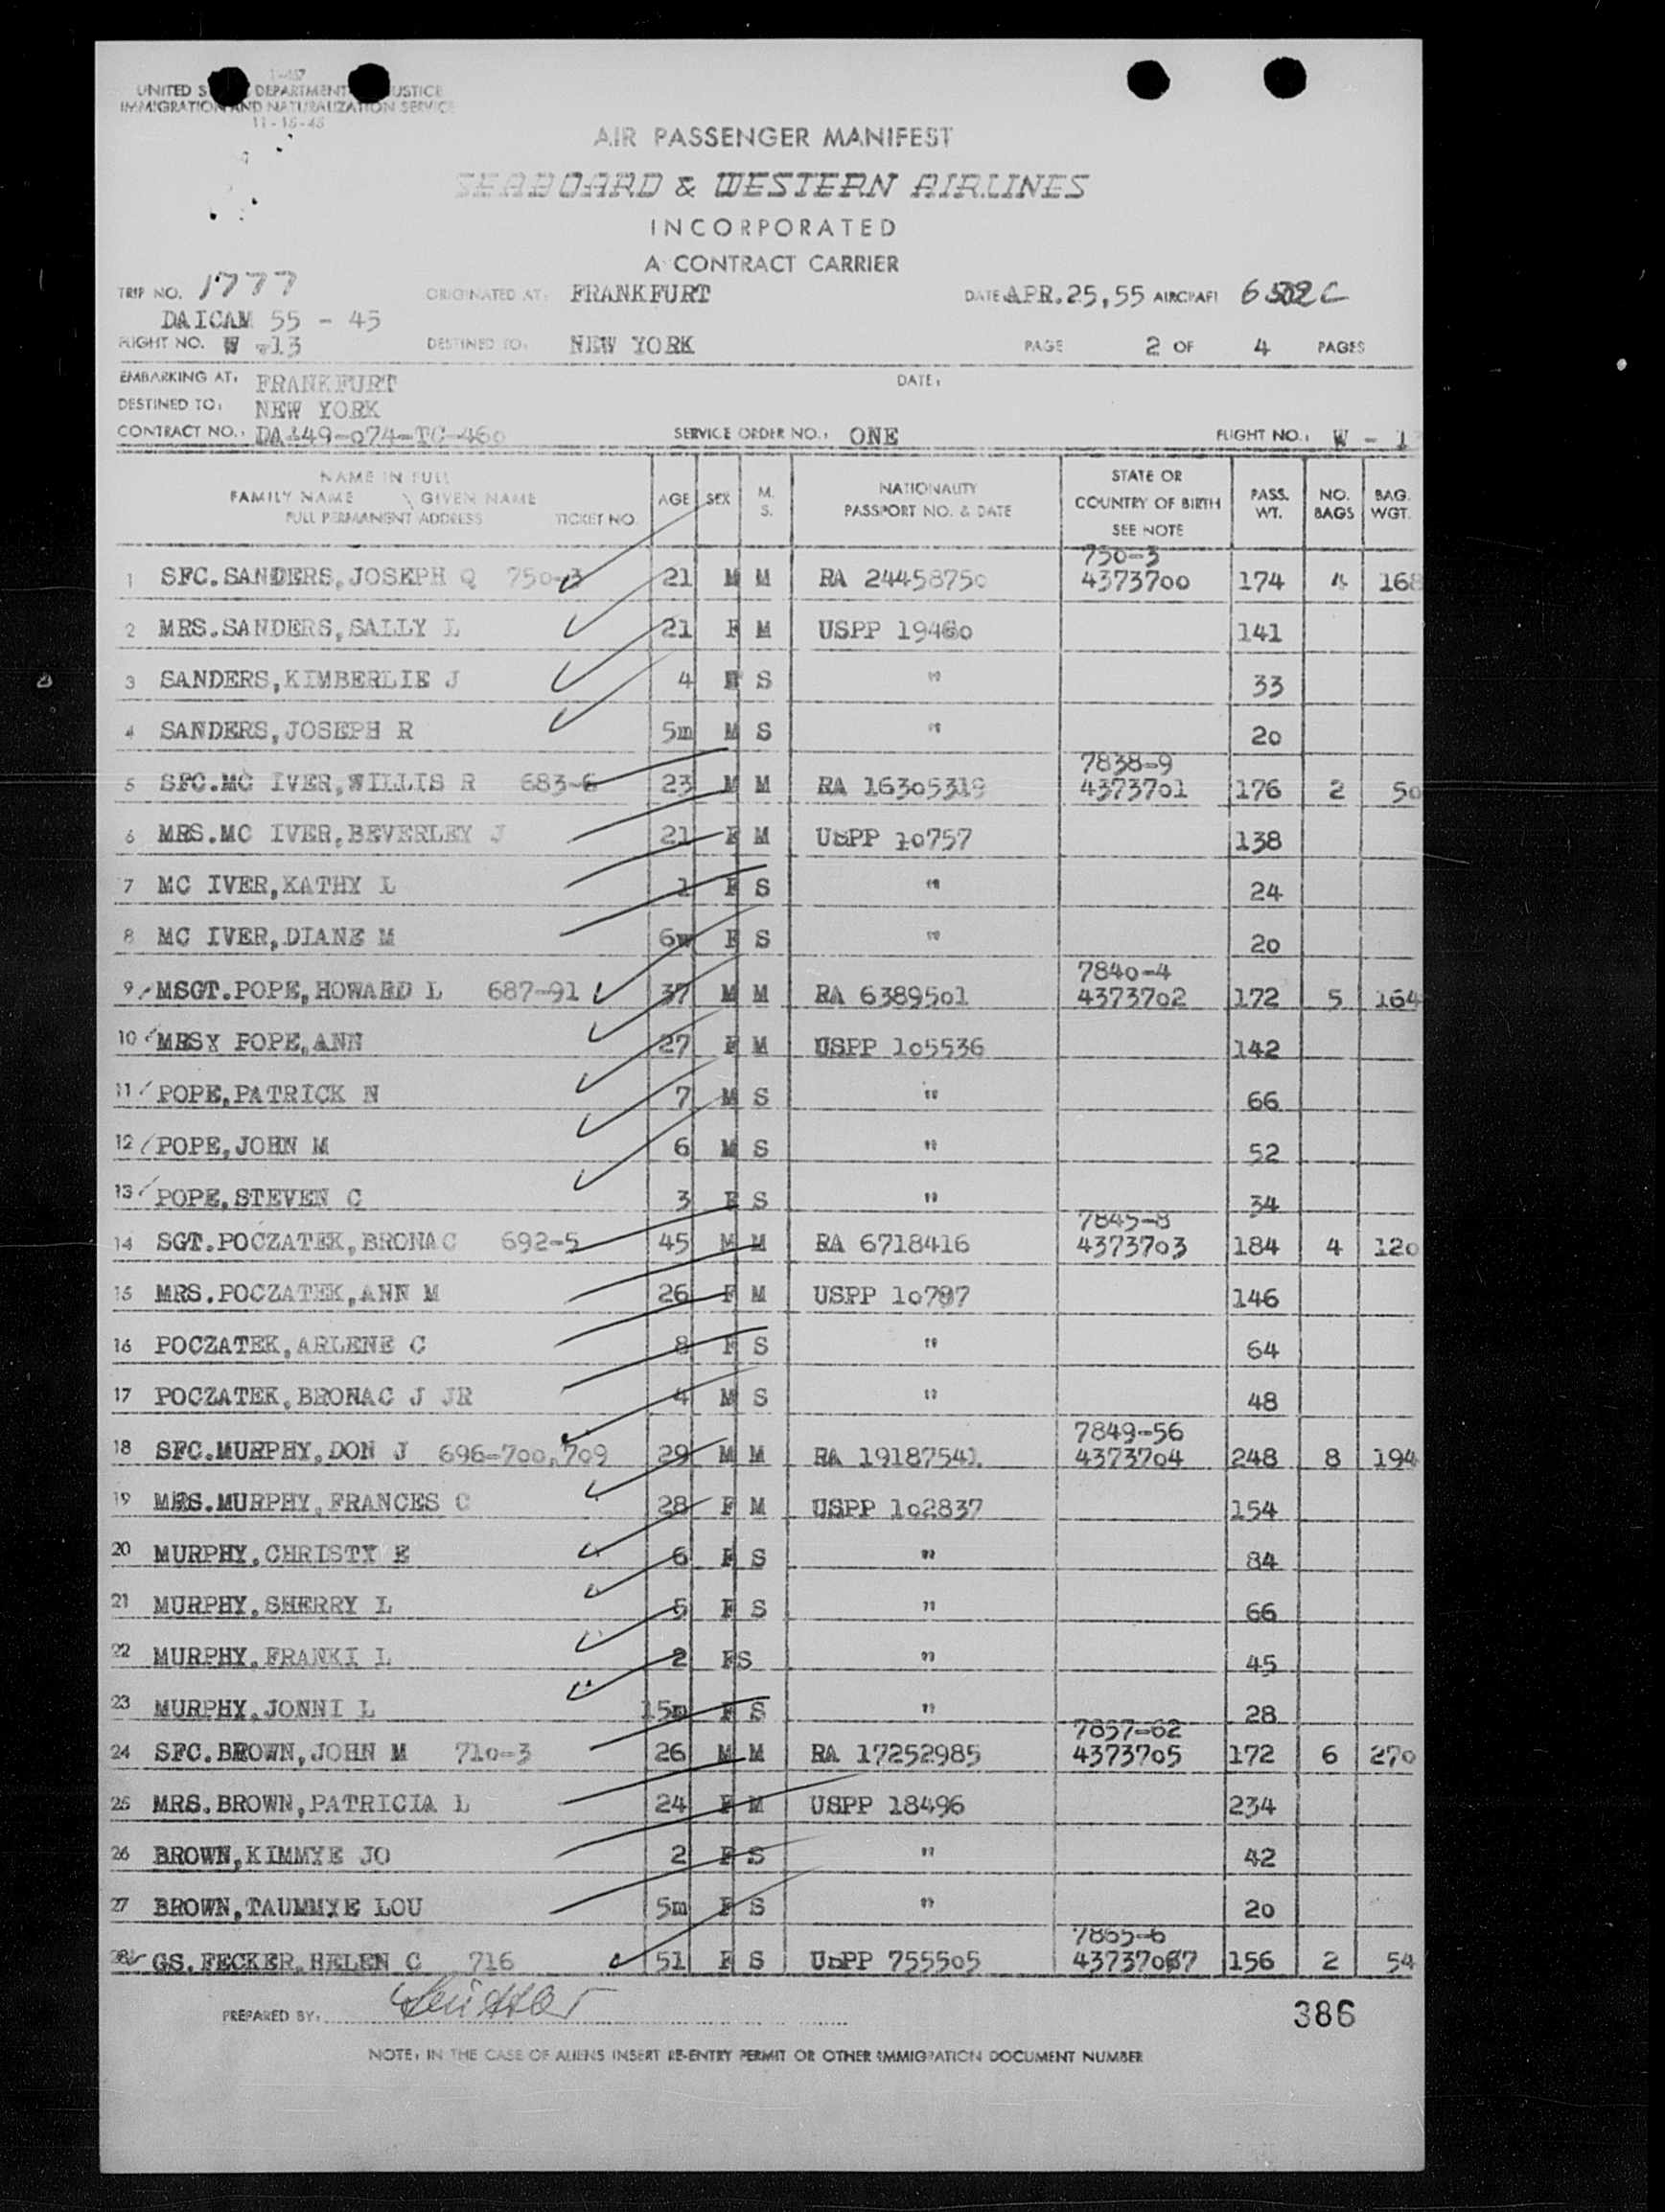 1-457
UNITED S DEPARTMENT USTICE
IMMIGRATION AND NATURALIZATION SERVICE
11-15-45
AIR PASSENGER MANIFEST
SEABOARD & WESTERN AIRLINES
INCORPORATED
A CONTRACT CARRIER
TRIP NO. 1777 ORIGINATED AT: FRANKFURT DATE APR.25,55 AIRCRAFT
DAICAM 55 - 45
FLIGHT NO. W -13 DESTINED TO: NEW YORK PAGE 2 OF 4 PAGES
EMBARKING AT: FRANKFURT DATE:
DESTINED TO: NEW YORK
CONTRACT NO.: DA-49-074-TC-460 SERVICE ORDER NO.: ONE FLIGHT NO.: W - 1
NAME IN FULL
FAMILY NAME \ GIVEN NAME
FULL PERMANENT ADDRESS TICKET NO. AGE SEX M. S. NATIONALITY PASSPORT NO. & DATE STATE OR COUNTRY OF BIRTH SEE NOTE PASS. WT. NO. BAGS BAG. WGT.
750-3
1 SFC.SANDERS,JOSEPH Q 750-3 21 M M RA 24458750 4373700 174 4 168
2 MRS.SANDERS,SALLY L 21 F M USPP 19460 141
3 SANDERS,KIMBERLIE J 4 F S " 33
4 SANDERS,JOSEPH R 5m M S " 20
7838-9
5 SFC.MC IVER,WILLIS R 683-6 23 M M RA 16305319 4373701 176 2 50
6 MRS.MC IVER,BEVERLEY J 21 F M USPP 10757 138
7 MC IVER,KATHY L 1 F S " 24
8 MC IVER,DIANE M 6w F S " 20
7840-4
9 MSGT.POPE,HOWARD L 687-91 37 M M RA 6389501 4373702 172 5 164
10 MRSY POPE,ANN 27 F M USPP 105536 142
11 POPE,PATRICK N 7 M S " 66
12 POPE,JOHN M 6 M S " 52
13 POPE,STEVEN C 3 F S " 34
7845-8
14 SGT.POCZATEK,BRONAC 692-5 45 M M RA 6718416 4373703 184 4 120
15 MRS.POCZATEK,ANN M 26 F M USPP 10797 146
16 POCZATEK,ARLENE C 8 F S " 64
17 POCZATEK,BRONAC J JR 4 M S " 48
7849-56
18 SFC.MURPHY,DON J 696-700,709 29 M M RA 19187541 4373704 248 8 194
19 MRS.MURPHY,FRANCES C 28 F M USPP 102837 154
20 MURPHY,CHRISTY E 6 F S " 84
21 MURPHY,SHERRY L 5 F S " 66
22 MURPHY,FRANKI L 2 FS " 45
23 MURPHY,JONNI L 15m F S " 28
7857-62
24 SFC.BROWN,JOHN M 710-3 26 M M RA 17252985 4373705 172 6 270
25 MRS.BROWN,PATRICIA L 24 F M USPP 18496 234
26 BROWN,KIMMYE JO 2 F S " 42
27 BROWN,TAUMMYE LOU 5m F S " 20
7865-6
28 GS.FECKER,HELEN C 716 51 F S USPP 755505 156 2 54
PREPARED BY:
386
NOTE: IN THE CASE OF ALIENS INSERT RE-ENTRY PERMIT OR OTHER IMMIGRATION DOCUMENT NUMBER